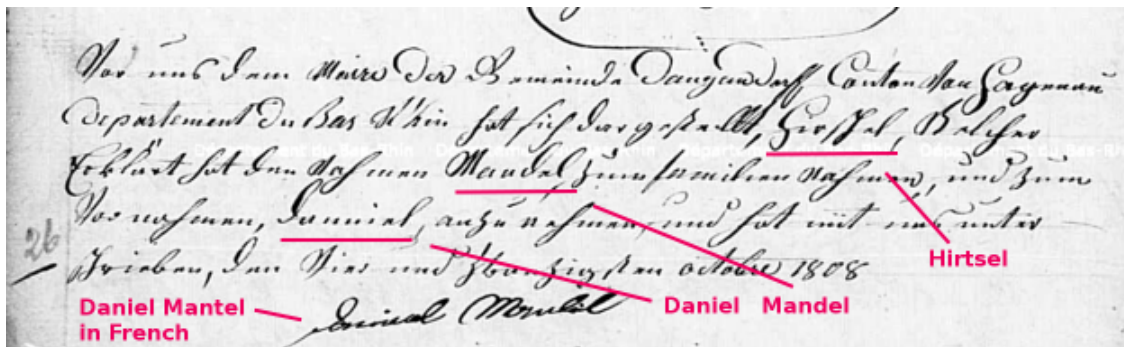 Vor uns dem Maire der Gemeinde Dauendorf, Canton Von Hagenau
Departement du Bas Rhin hat sich dargestellt, Hirschel, Welcher
Erklärt hat den Nahmen Mandel, zum familien Nahmen, und zum
Vor nahmen, Danniel, anzu nehmen, und hat mit uns unter
schrieben, den Vier und zwanzigsten octobre 1808
26
Hirtsel
Daniel Mandel
Daniel Mantel
in French